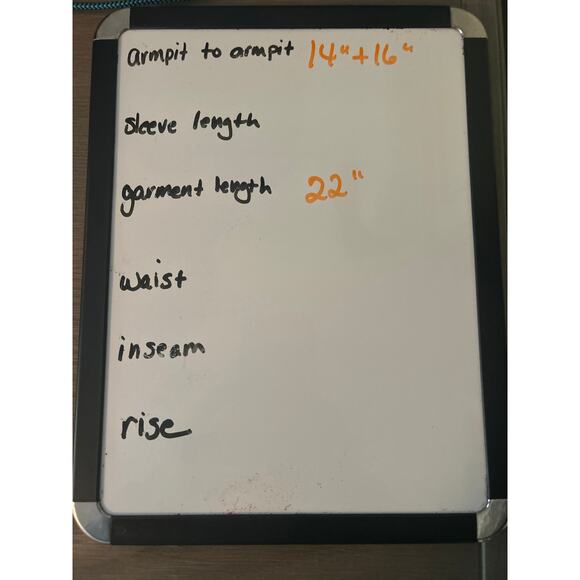 armpit to armpit 14"+16"
sleeve length
garment length 22"
waist
inseam
rise